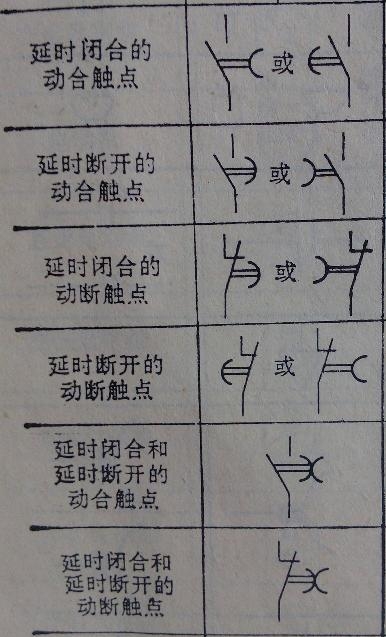 延时闭合的
动合触点
或
延时断开的
动合触点
或
延时闭合的
动断触点
或
延时断开的
动断触点
或
延时闭合和
延时断开的
动合触点
延时闭合和
延时断开的
动断触点